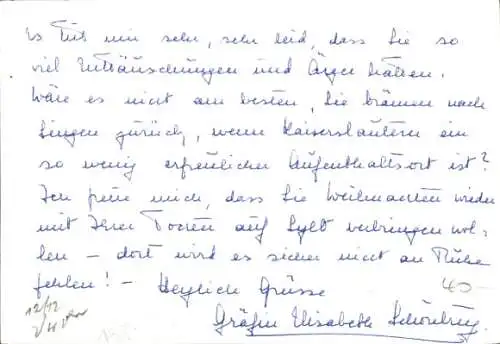 Es tut mir sehr, sehr leid, dass Sie so
viel Enttäuschungen und Ärger hatten.
Wäre es nicht am besten, Sie kämen nach
Singen zurück, wenn Kaiserslautern ein
so wenig erfreulicher Aufenthaltsort ist?
Ich freue mich, dass Sie Weihnachten wieder
mit Ihrer Tochter auf Sylt verbringen wol-
len – dort wird es sicher nicht an Ruhe
fehlen! – Herzlich Grüsse
40
12/12
Gräfin Elisabeth Schönburg